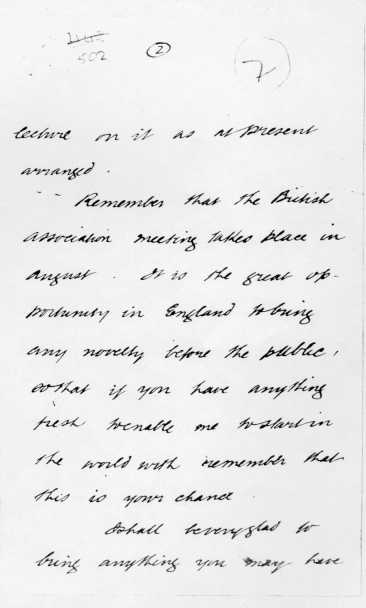 502
2
7
lecture on it as at present
arranged.
Remember that the British
Association meeting takes place in
August. It is the great op-
portunity in England to bring
any novelty before the public,
so that if you have anything
fresh to enable me to start in
the world with remember that
this is your chance.
I shall be very glad to
bring anything you may have